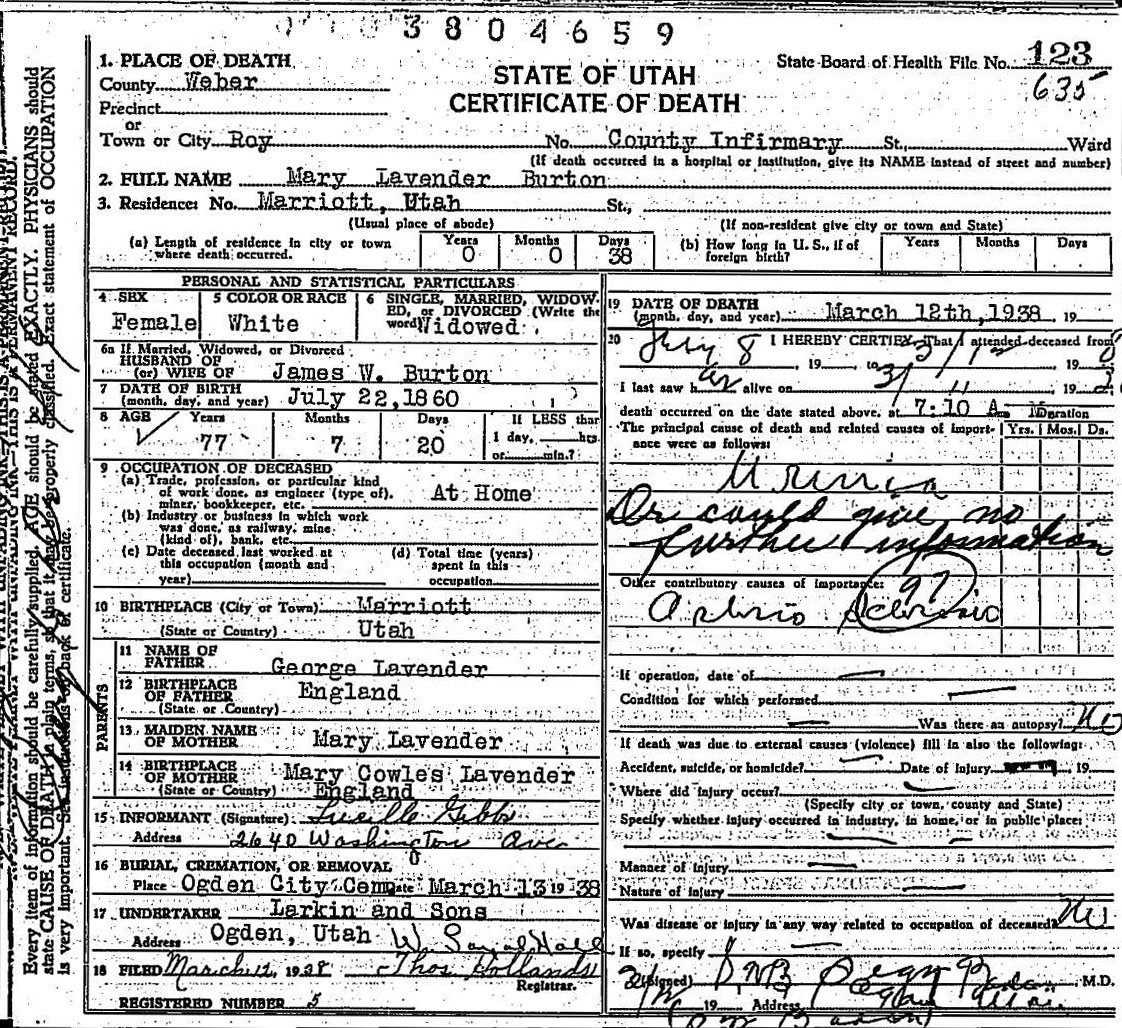 3804659
1. PLACE OF DEATH
State Board of Health File No. 123
635
County Weber
STATE OF UTAH
CERTIFICATE OF DEATH
Precinct
or
Town or City Roy No. County Infirmary St., Ward
(If death occurred in a hospital or institution, give its NAME instead of street and number)
2. FULL NAME Mary Lavender Burton
3. Residence: No. Marriott, Utah St.,
(Usual place of abode) (If non-resident give city or town and State)
(a) Length of residence in city or town where death occurred. Years 0 Months 0 Days 38
(b) How long in U. S., if of foreign birth? Years Months Days
PERSONAL AND STATISTICAL PARTICULARS
4 SEX Female
5 COLOR OR RACE White
6 SINGLE, MARRIED, WIDOWED, or DIVORCED (Write the word) Widowed
6a If Married, Widowed, or Divorced
HUSBAND OF
(or) WIFE OF James W. Burton
7 DATE OF BIRTH
(month, day, and year) July 22,1860
8 AGE Years 77 Months 7 Days 20
If LESS than
1 day, hrs
or min.?
9 OCCUPATION OF DECEASED
(a) Trade, profession, or particular kind
of work done, as engineer (type of),
miner, bookkeeper, etc. At Home
(b) Industry or business in which work
was done, as railway, mine
(kind of), bank, etc.
(c) Date deceased last worked at
this occupation (month and
year)
(d) Total time (years)
spent in this
occupation
10 BIRTHPLACE (City or Town) Marriott
(State or Country) Utah
PARENTS
11 NAME OF
FATHER George Lavender
12 BIRTHPLACE
OF FATHER England
(State or Country)
13 MAIDEN NAME
OF MOTHER Mary Lavender
14 BIRTHPLACE
OF MOTHER Mary Cowles Lavender
(State or Country) England
15 INFORMANT (Signature) Lucille Gibbs
Address 2640 Washington Ave
16 BURIAL, CREMATION, OR REMOVAL
Place Ogden City Cem Date March 13 19 38
17 UNDERTAKER Larkin and Sons
Address Ogden, Utah
18 FILED March 12, 1938 Thos Hollands
Registrar.
REGISTERED NUMBER 5
19 DATE OF DEATH
(month, day, and year) March 12th,1938 19
20 I HEREBY CERTIFY, That I attended deceased from
I last saw her alive on 3/11 19
death occurred on the date stated above, at 7:10 A. M.
Duration
The principal cause of death and related causes of importance were as follows: Yrs. Mos. Ds.
Dr could give no
further information
Other contributory causes of importance: 97
If operation, date of
Condition for which performed
Was there an autopsy? No
If death was due to external causes (violence) fill in also the following:
Accident, suicide, or homicide? Date of injury 19
Where did injury occur?
(Specify city or town, county and State)
Specify whether injury occurred in industry, in home, or in public place:
Manner of Injury
Nature of Injury
Was disease or injury in any way related to occupation of deceased? No
If so, specify
(Signed) M.D.
19 Address
Every item of information should be carefully supplied. AGE should be stated EXACTLY. PHYSICIANS should
state CAUSE OF DEATH in plain terms, so that it may be properly classified. Exact statement of OCCUPATION
is very important. See instructions on back of certificate.